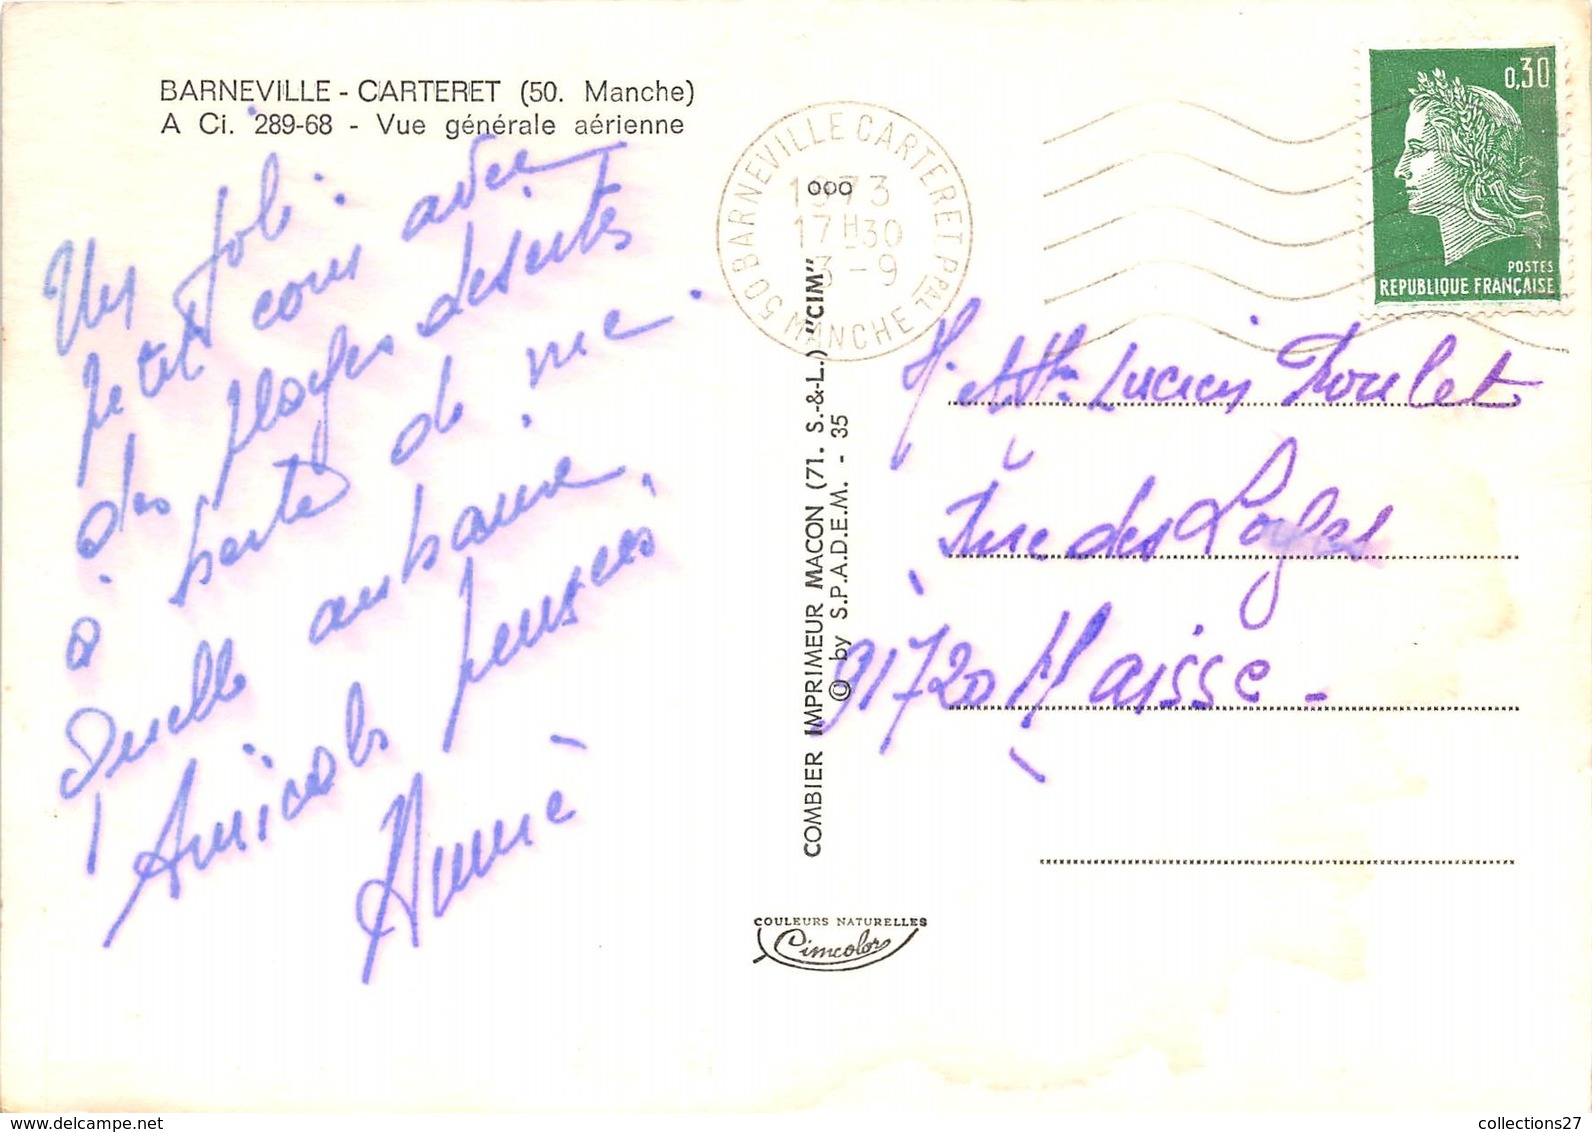 BARNEVILLE - CARTERET (50. Manche)
A Ci. 289-68 - Vue générale aérienne
Un joli
petit coin avec
des plages désertes
à perte de vue.
Quelle aubaine,
Amicales pensées
Annie
COMBIER IMPRIMEUR MACON (71. S.-&-L.) "CIM"
© by S.P.A.D.E.M. - 35
COULEURS NATURELLES
Cimcolor
50 BARNEVILLE CARTERET Ppal
MANCHE
1973
17H30
3 - 9
0,30
POSTES
REPUBLIQUE FRANÇAISE
M. et Mme Lucien
Rue des
91720 Maisse -
collections27